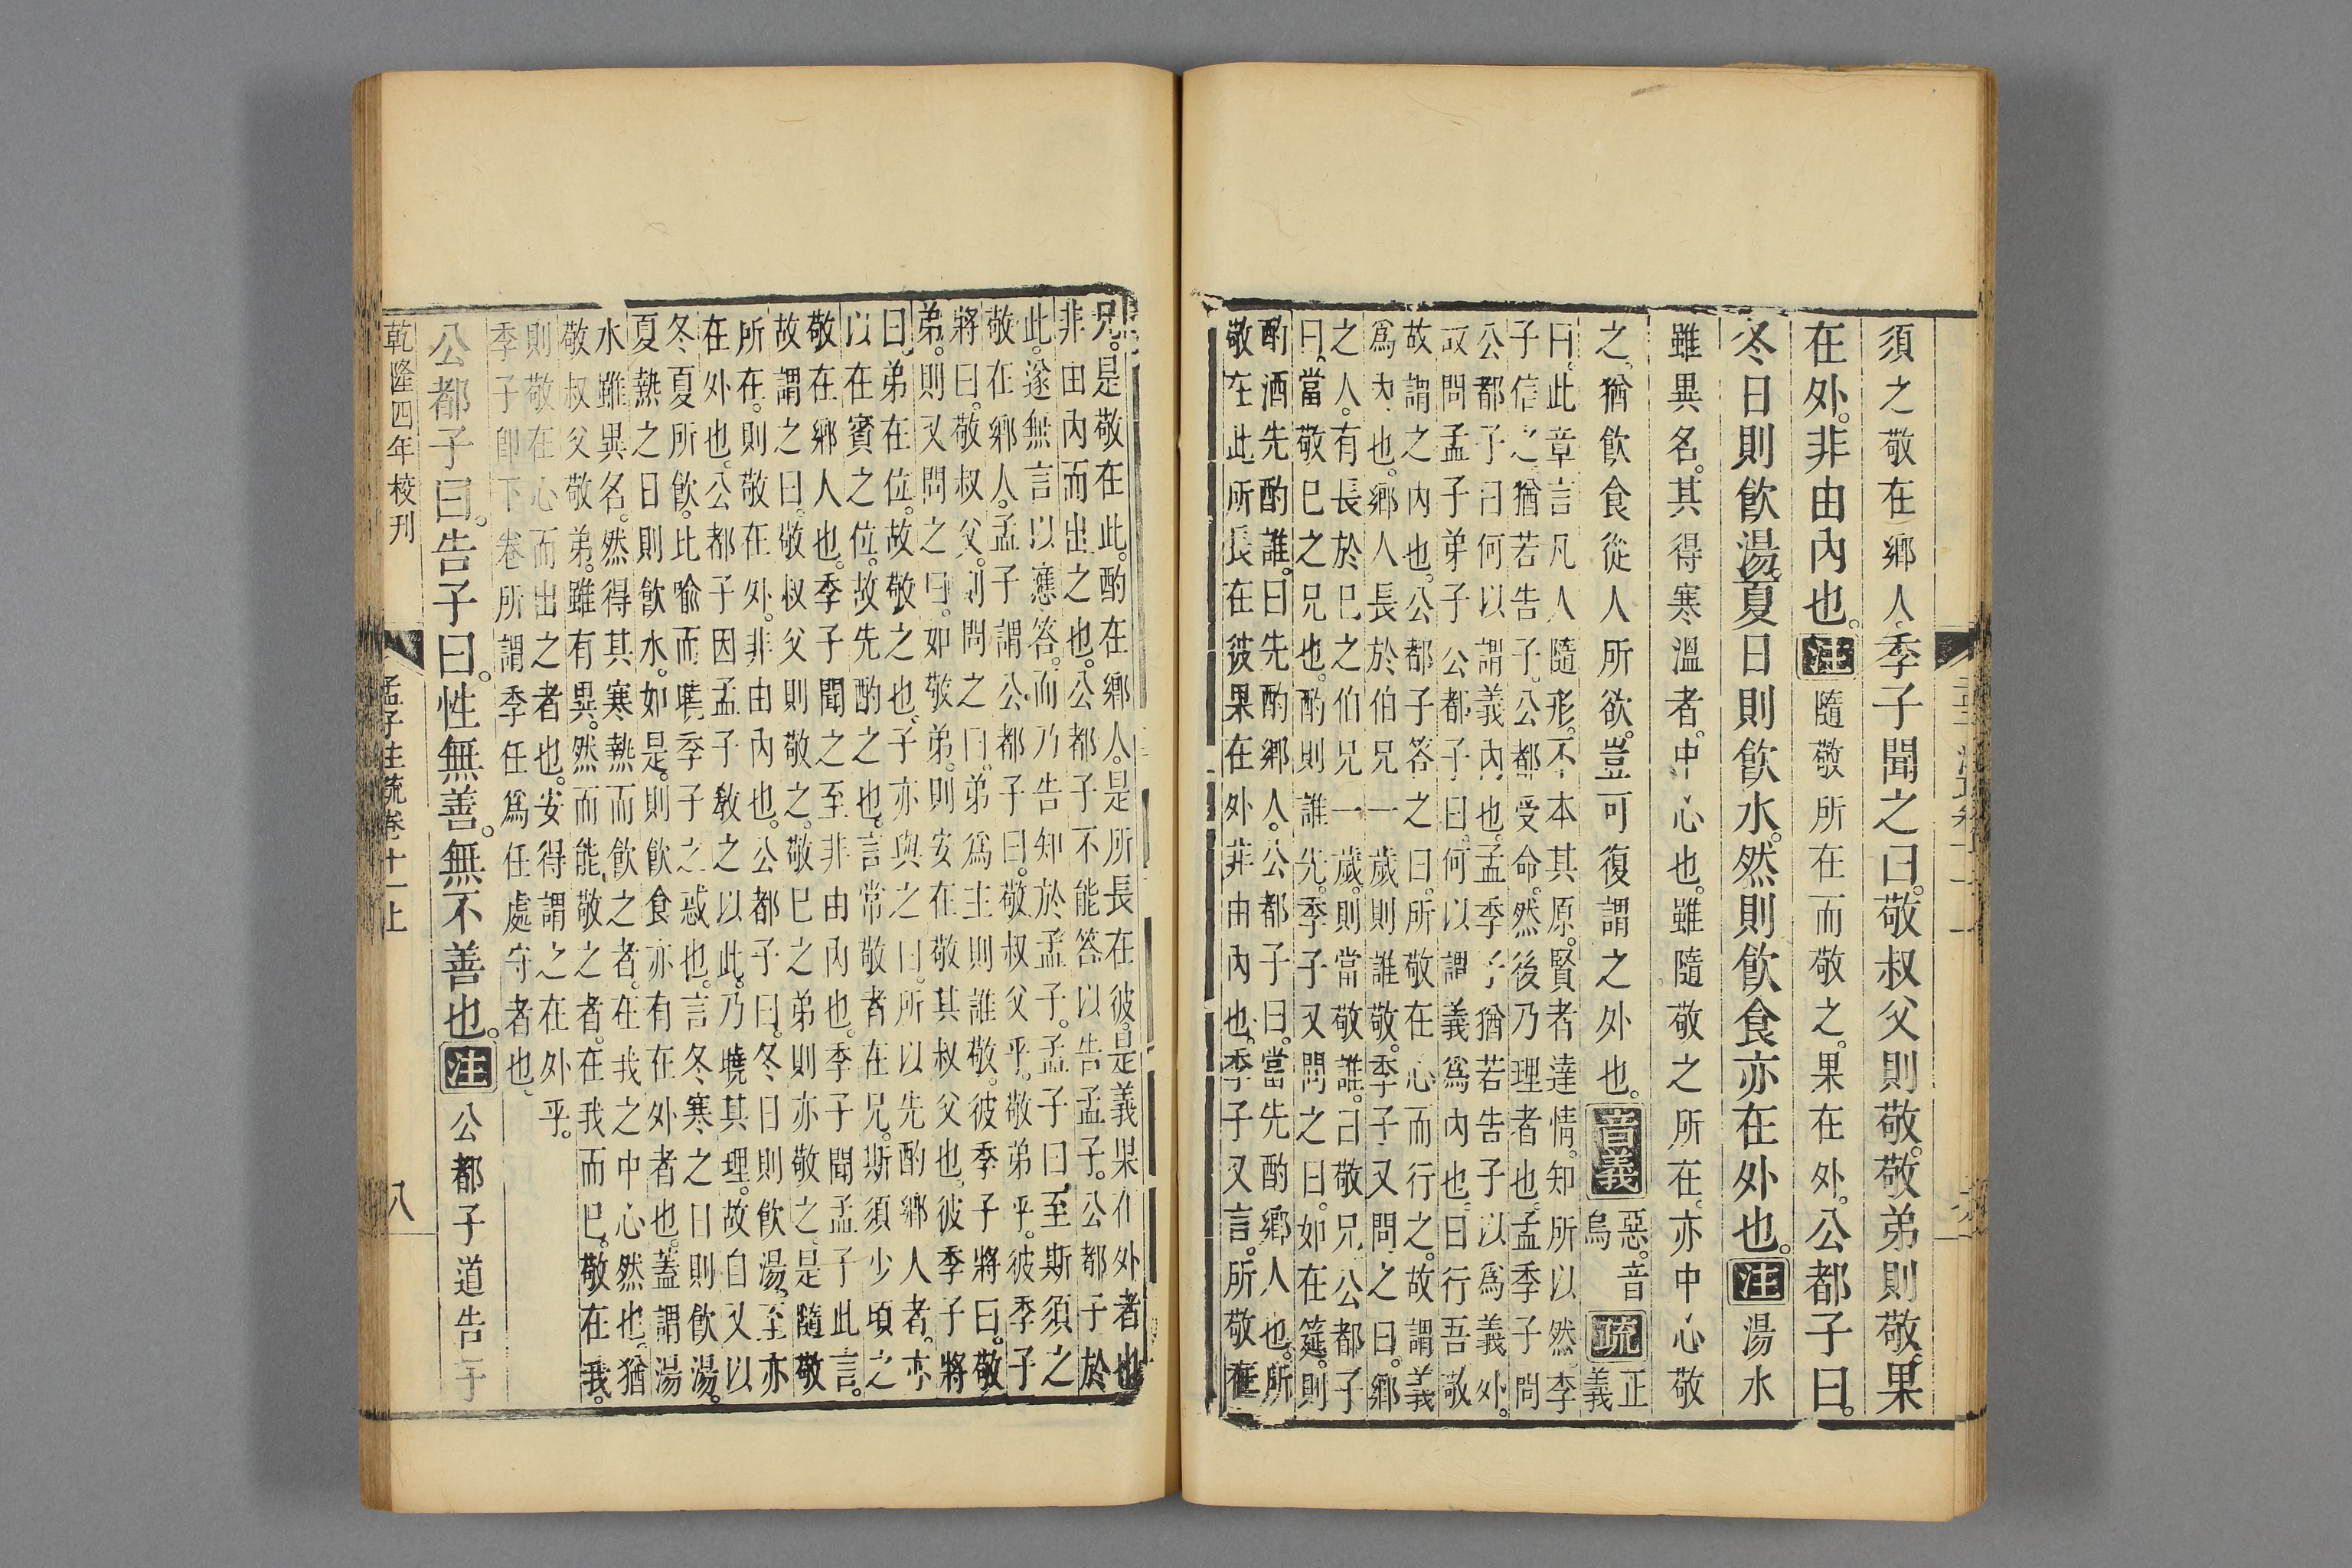 須之敬在鄉人。季子聞之曰。敬叔父則敬。敬弟則敬。果
在外。非由內也。注隨敬所在而敬之。果在外。公都子曰。
冬日則飲湯。夏日則飲水。然則飲食亦在外也。注湯水
雖異名。其得寒溫者。中心也。雖隨敬之所在。亦中心敬
之。猶飲食從人所欲。豈可復謂之外也。音義惡。音烏疏正義
曰。此章言凡人隨形。不本其原。賢者達情。知所以然。季
子信之猶若告子。公都受命。然後乃理者也。孟季子問
公都子曰何以謂義內也。孟季子猶若告子以爲義外。
故問孟子弟子公都子曰。何以謂義爲內也。曰行吾敬
故謂之內也。公都子答之曰。所敬在心而行之。故謂義
爲內也。鄉人長於伯兄一歲則誰敬。季子又問之曰。鄉
之人。有長於已之伯兄一歲。則當敬誰。曰敬兄。公都子
曰。當敬已之兄也。酌則誰先。季子又問之曰。如在筵。則
酌酒先酌誰。曰先酌鄉人。公都子曰。當先酌鄉人也。所
敬在此所長在彼果在外非由內也。季子又言。所敬在
兄。是敬在此。酌在鄉人。是所長在彼。是義果在外者也
非由內而出之也。公都子不能答以告孟子。公都子於
此。遂無言以應答。而乃告知於孟子。孟子曰。至斯須之
敬在鄉人。孟子謂公都子曰。敬叔父乎。敬弟乎。彼季子
將曰。敬叔父。則問之曰。弟爲主則誰敬。彼季子將曰。敬
弟。則又問之曰。如敬弟。則安在敬其叔父也。彼季子將
曰。弟在位。故敬之也。子亦與之曰。所以先酌鄉人者。亦
以在賓之位。故先酌之也。言常敬者在兄。斯須少頃之
敬在鄉人也。季子聞之至非由內也。季子聞孟子此言。
故謂之曰。敬叔父則敬之。敬已之弟則亦敬之。是隨敬
所在。則敬在外。非由內也。公都子曰。冬日則飲湯。至亦
在外也。公都子因孟子敎之以此。乃曉其理。故自又以
冬夏所飲。比喻而曉季子之惑也。言冬寒之日則飲湯。
夏熱之日則飲水。如是。則飲食亦有在外者也。蓋謂湯
水雖異名。然得其寒熱而飲之者。在我之中心然也。猶
敬叔父敬弟。雖有異。然而能敬之者。在我而已。敬在我。
則敬在心而出之者也。安得謂之在外乎。
季子卽下卷所謂季任爲任處守者也。
公都子曰。告子曰。性無善。無不善也。注公都子道告子
乾隆四年校刊 孟子注疏卷十一上 八